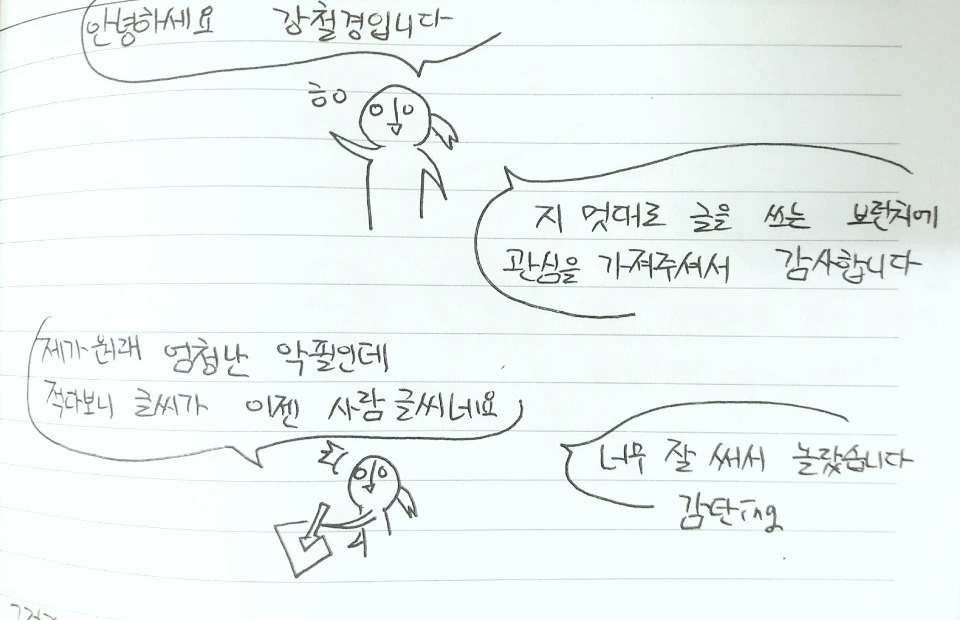 안녕하세요 강철경입니다
흥0
지 멋대로 글을 쓰는 보런치에
관심을 가져주셔서 감사합니다
제가 원래 엄청난 악필인데
적다보니 글씨가 이젠 사람 글씨네요
너무 잘 써서 놀랐습니다
감탄ing